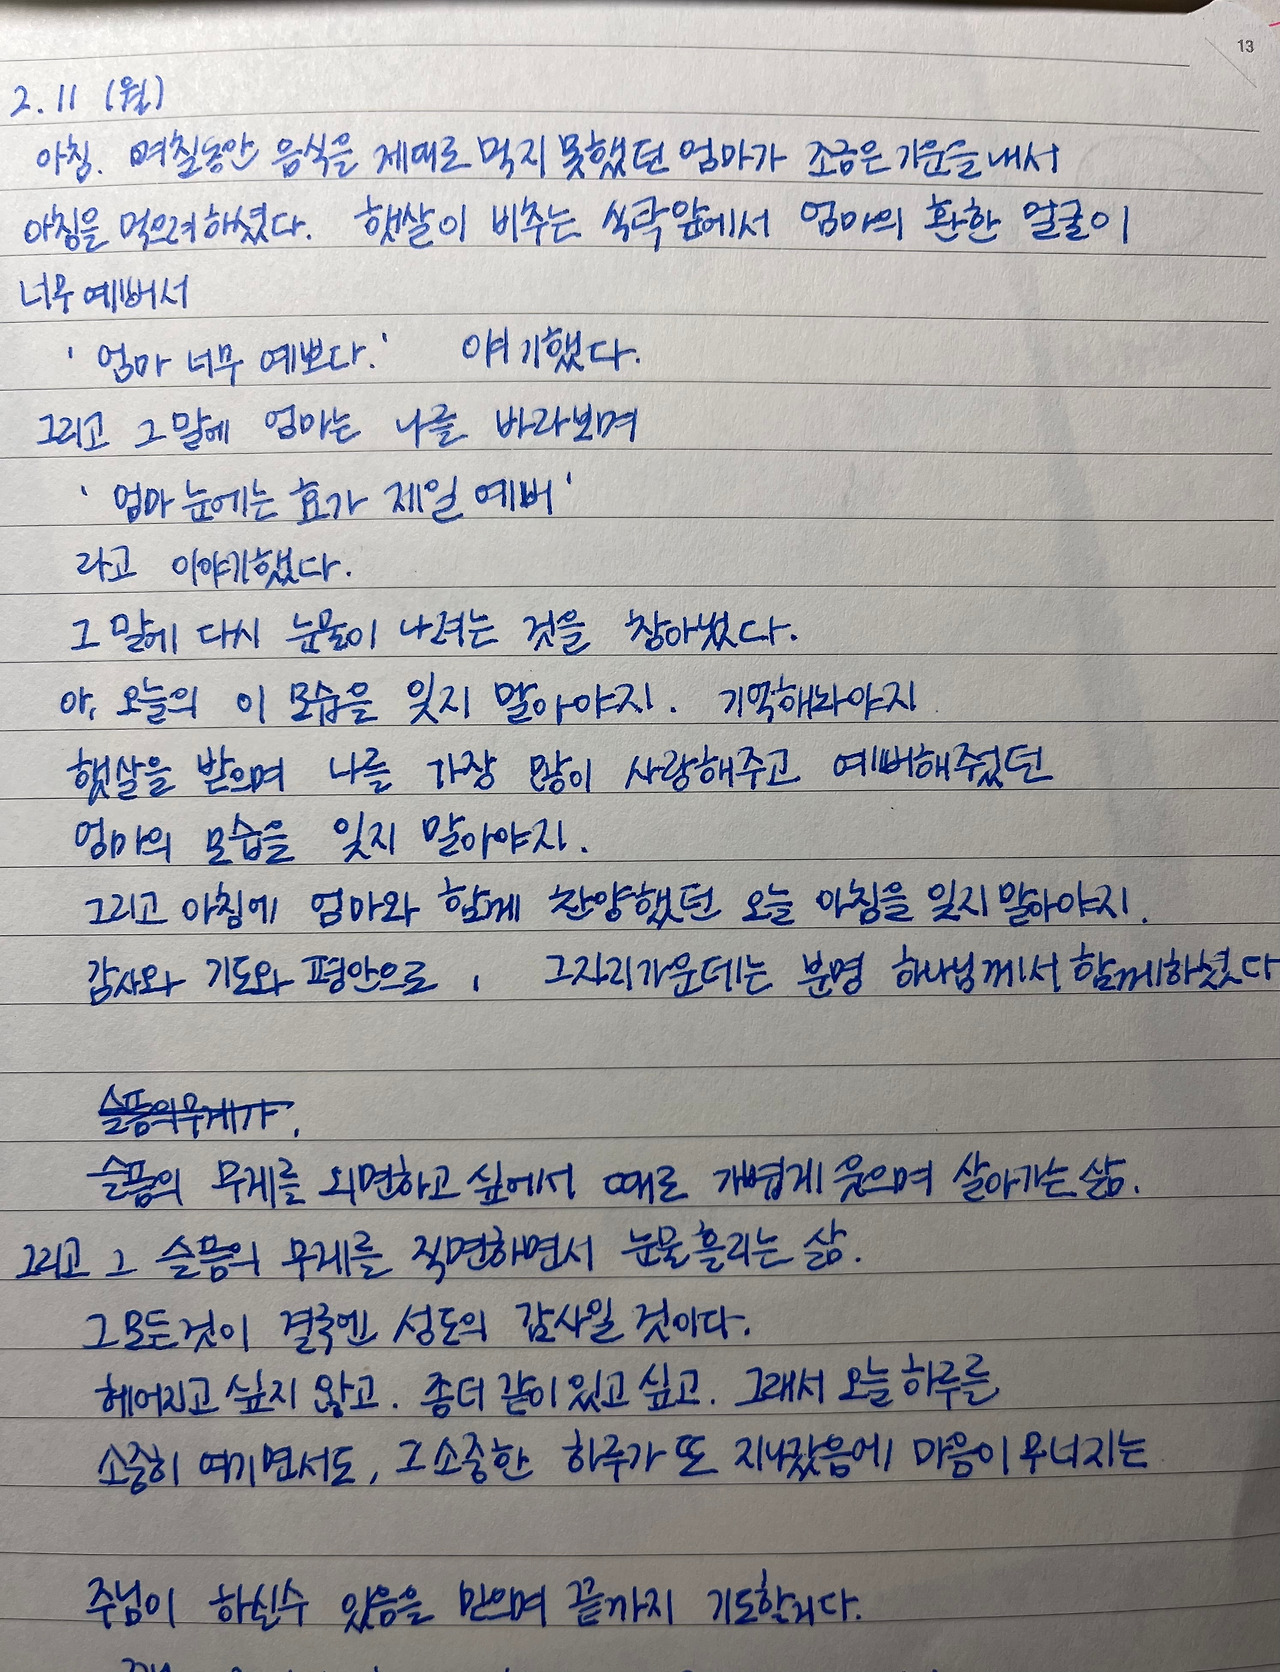 13
2. 11 (월)
아침. 며칠동안 음식을 제대로 먹지 못했던 엄마가 조금은 기운을 내서
아침을 먹으려 하셨다. 햇살이 비추는 식탁앞에서 엄마의 환한 얼굴이
너무 예뻐서
' 엄마 너무 예쁘다.' 얘기했다.
그리고 그 말에 엄마는 나를 바라보며
' 엄마 눈에는 효가 제일 예뻐 '
라고 이야기했다.
그 말에 다시 눈물이 나려는 것을 참아냈다.
아, 오늘의 이 모습을 잊지 말아야지. 기억해놔야지
햇살을 받으며 나를 가장 많이 사랑해주고 예뻐해주었던
엄마의 모습을 잊지 말아야지.
그리고 아침에 엄마와 함께 찬양했던 오늘 아침을 잊지 말아야지.
감사와 기도와 평안으로, 그자리가운데는 분명 하나님께서 함께하셨다
슬픔의무게가,
슬픔의 무게를 외면하고 싶에서 때로 가볍게 웃으며 살아가는 삶.
그리고 그 슬픔의 무게를 직면하면서 눈물흘리는 삶.
그모든것이 결국엔 성도의 감사일 것이다.
헤어지고 싶지 않고. 좀더 같이 있고 싶고. 그래서 오늘 하루를
소중히 여기면서도, 그 소중한 하루가 또 지나갔음에 마음이 무너지는
주님이 하실수 있음을 믿으며 끝까지 기도할거다.